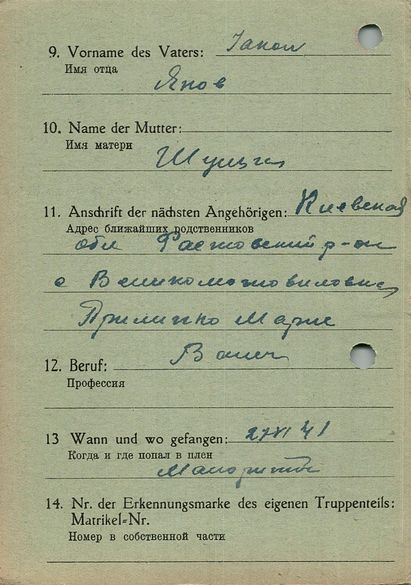 9. Vorname des Vaters:
Имя отца
Яков
10. Name der Mutter:
Имя матери
11. Anschrift der nächsten Angehörigen: Киевская
Адрес ближайших родственников
обл Фастовский р-он
с
Марие
12. Beruf:
Профессия
13 Wann und wo gefangen: 27 VI 41
Когда и где попал в плен
14. Nr. der Erkennungsmarke des eigenen Truppenteils:
Matrikel=Nr.
Номер в собственной части